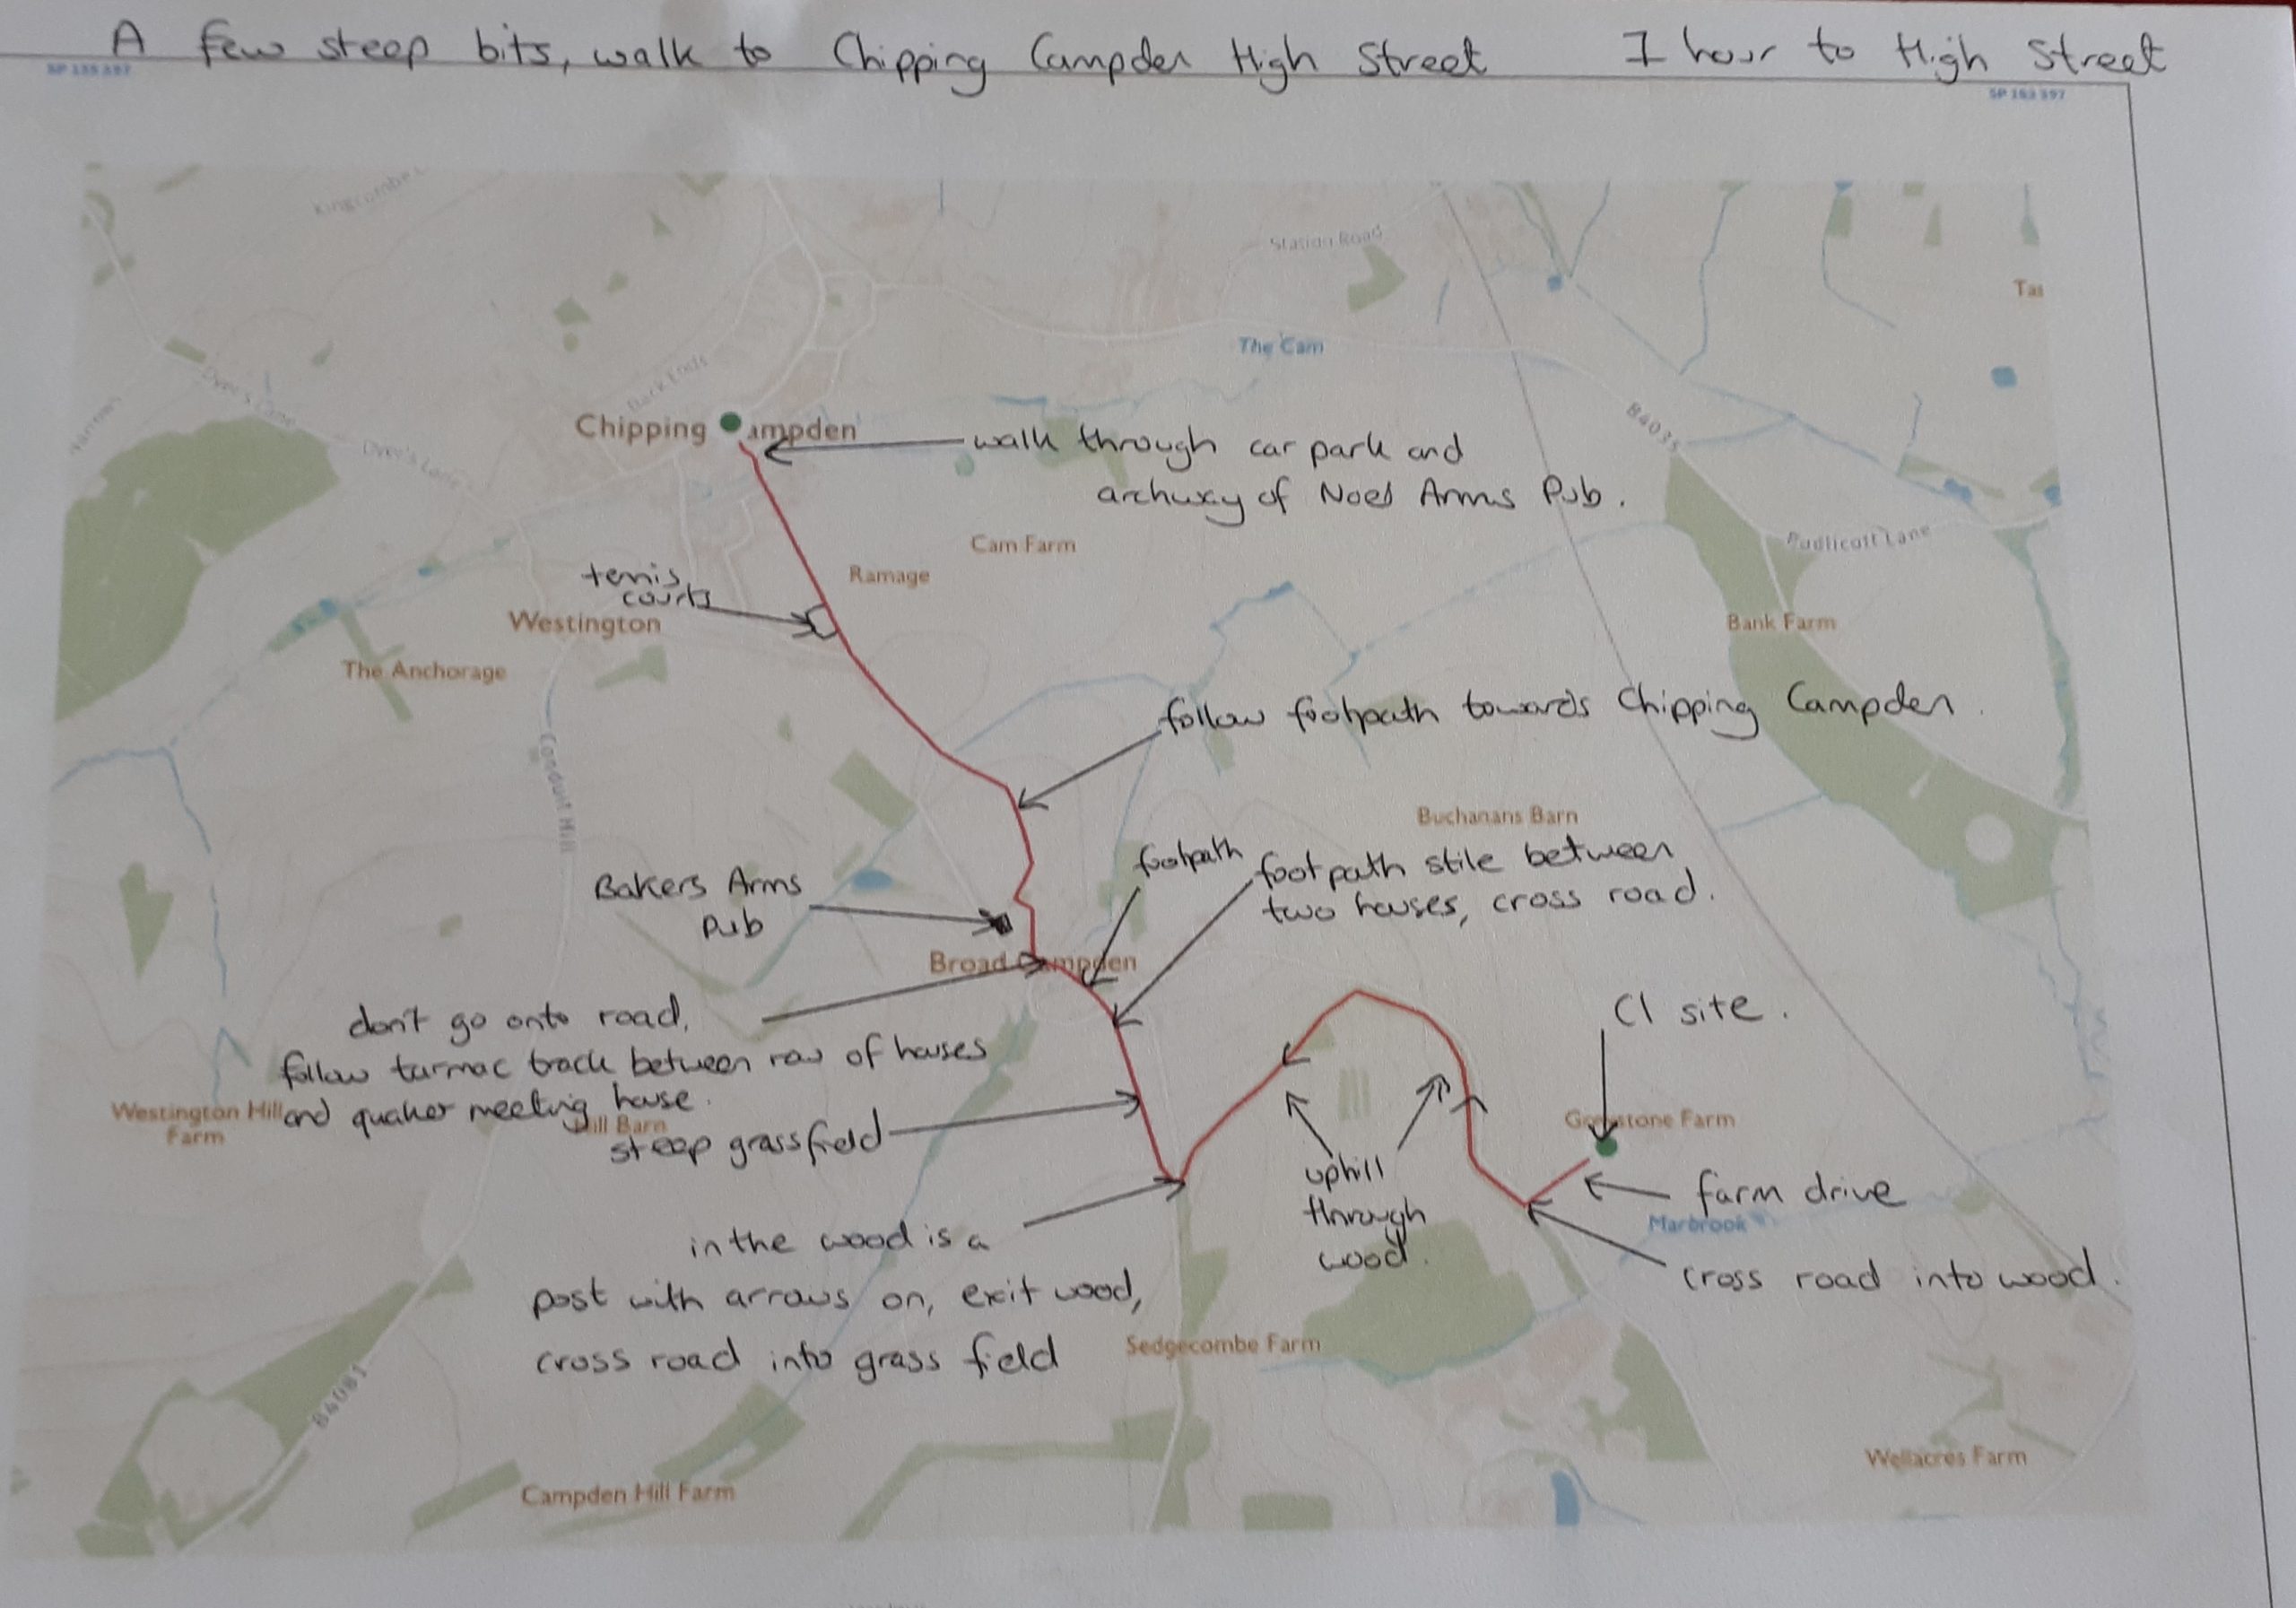 A few steep bits, walk to Chipping Campden High Street 1 hour to High Street
SP 155 397
SP 193 397
Kingcombe
Station Road
Tas
The Cam
Back Ends
Dyer's Lane
Dyer's Lane
B4035
Chipping ampden
walk through car park and
archway of Noel Arms Pub.
Cam Farm
Padlicott Lane
Ramage
tennis
courts
Westington
Bank Farm
The Anchorage
follow footpath towards Chipping Campden.
Conduit Hill
Buchanans Barn
footpath
footpath stile between
two houses, cross road.
Bakers Arms
Pub
Broad Campden
don't go onto road,
follow tarmac track between row of houses
and quaker meeting house.
CL site.
Westington Hill
Farm
Hill Barn
steep grassfield
Greystone Farm
uphill
through
wood.
farm drive
Marbrook
in the wood is a
post with arrows on, exit wood,
cross road into grass field
cross road into wood.
Sedgecombe Farm
B4081
Wellacres Farm
Campden Hill Farm